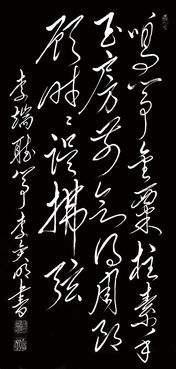 鳴筝金粟柱素手
玉房前欲得周郎
顧時〻誤拂弦
李端聽筝李 明書